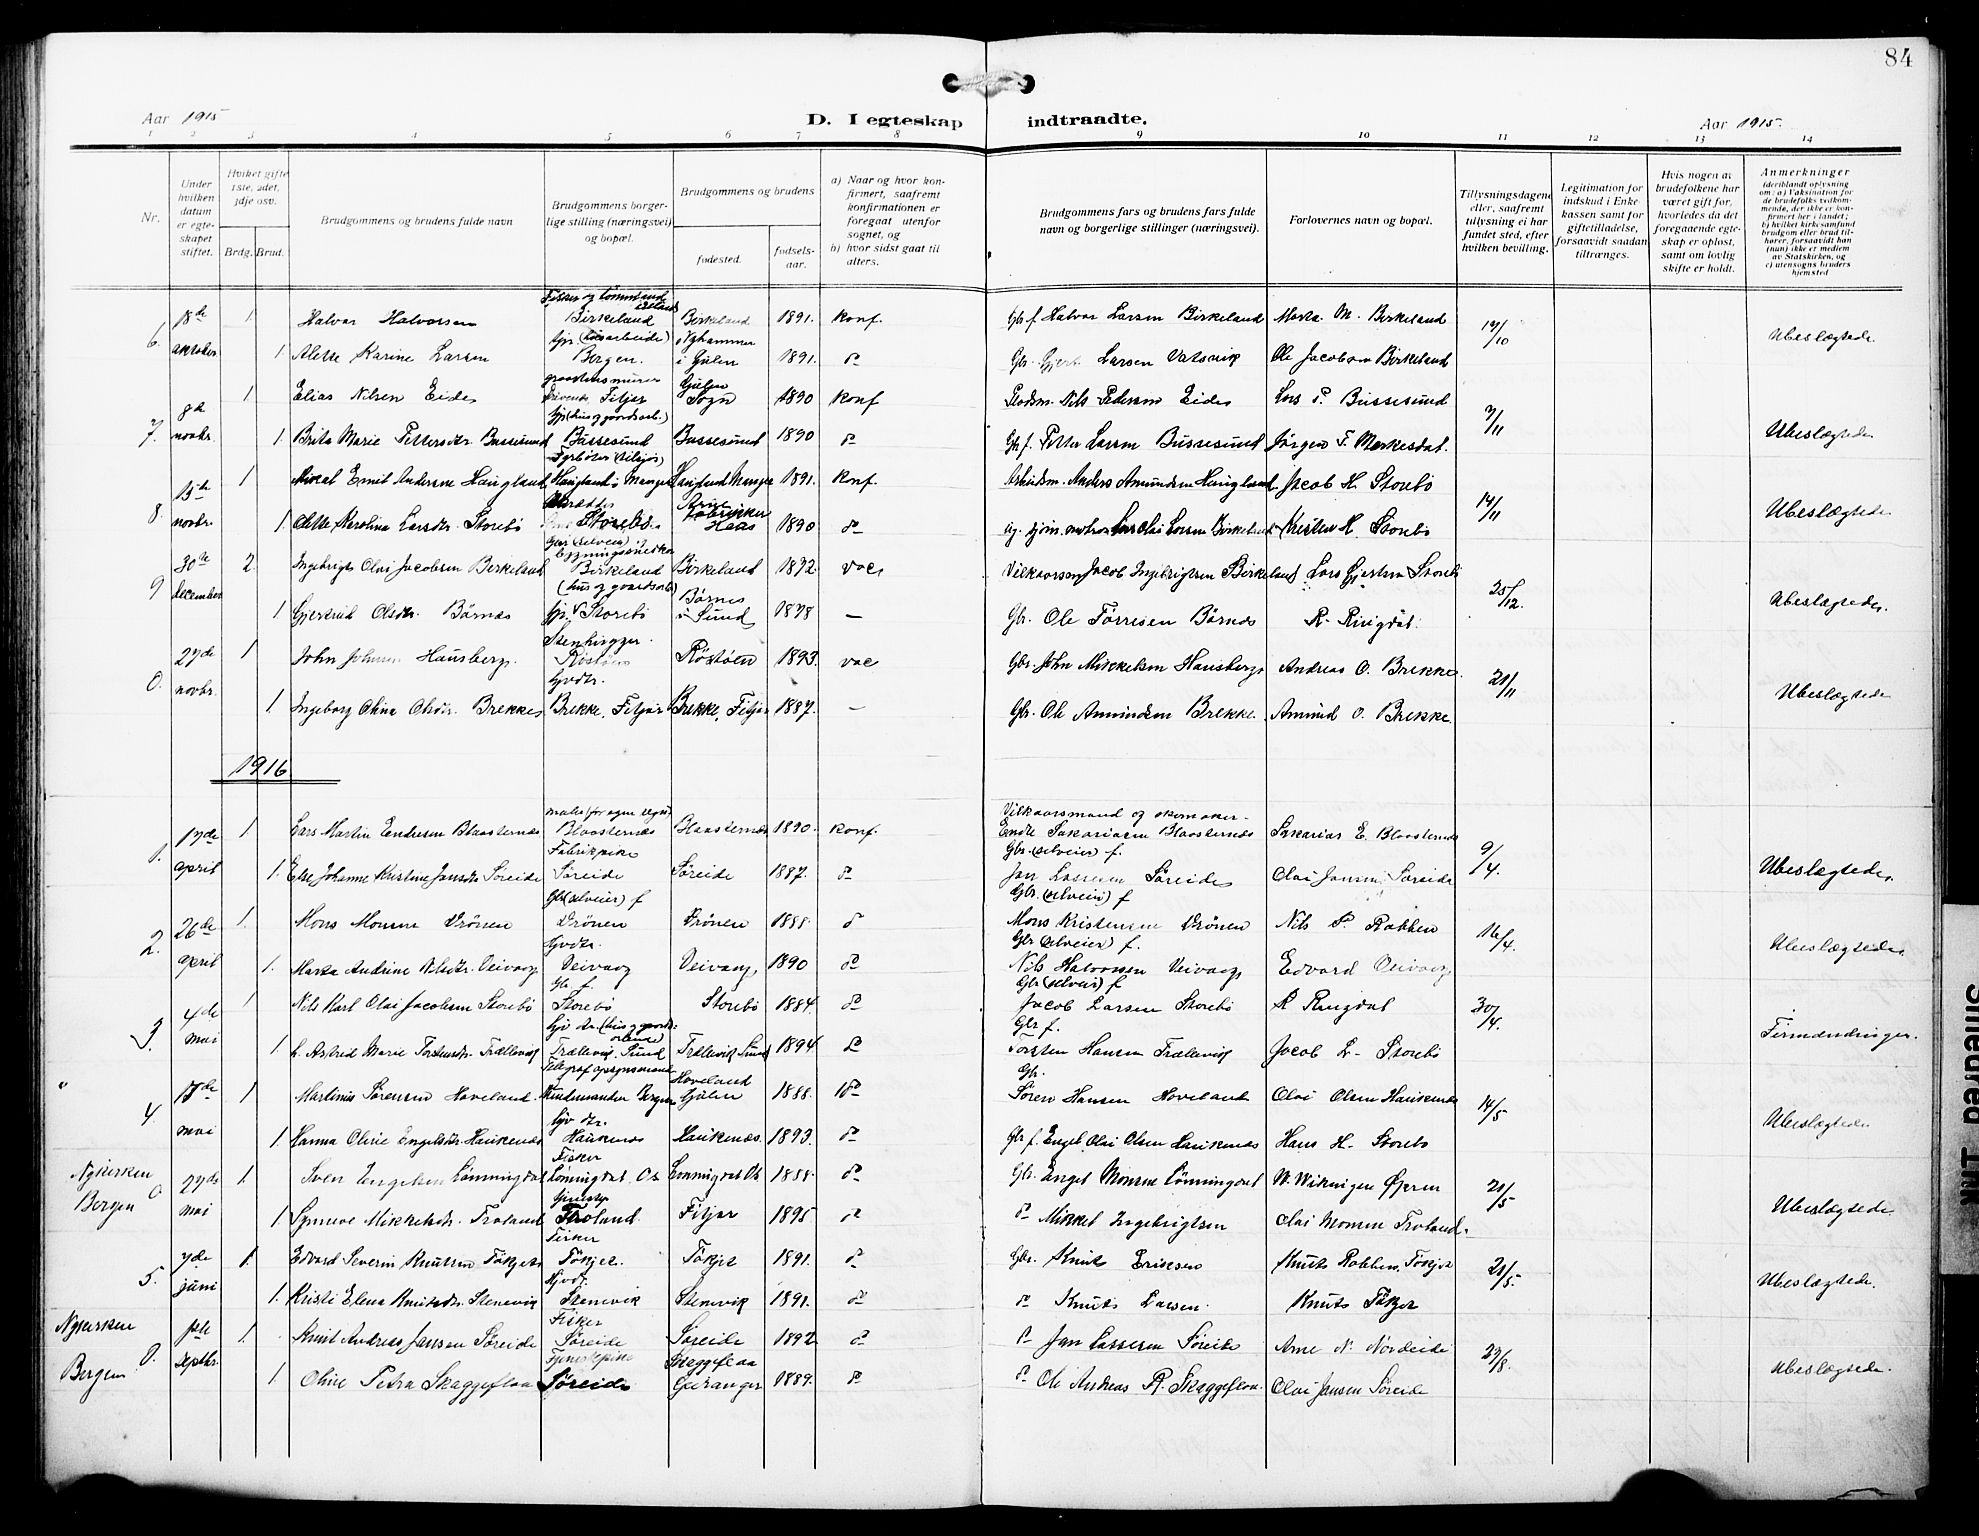 84
Aar 1915
D. I egteskap indtraadte.
Aar 1915.
1 2 3 4 5 6 7 8 9 10 11 12 13 14
Nr.
Under hvilken datum er egteskapet stiftet.
Hvilket gifte 1ste, 2det, 3dje osv.
Brdg. Brud.
Brudgommens og brudens fulde navn
Brudgommens borgerlige stilling (næringsvei) og bopæl.
Brudgommens og brudens
fødested.
fødselsaar.
a) Naar og hvor konfirmert, saafremt konfirmationen er foregaat utenfor sognet, og
b) hvor sidst gaat til alters.
Brudgommens fars og brudens fars fulde navn og borgerlige stillinger (næringsvei).
Forlovernes navn og bopæl.
Tillysningsdagene eller, saafremt tillysning ei har fundet sted, efter hvilken bevilling.
Legitimation for indskud i Enkekassen samt for giftetilladelse, forsaavidt saadan tiltrænges.
Hvis nogen av brudefolkene har været gift før, hvorledes da det foregaaende egteskap er opløst, samt om lovlig skifte er holdt.
Anmerkninger (deriblandt oplysning om: a) Vaksination for de brudefolks vedkommende, der ikke er konfirmert her i landet; b) hvilket kirkesamfund brudgom eller brud tilhører, forsaavidt han (hun) ikke er medlem av Statskirken, og c) utensogns bruders hjemsted
6. 18de oktober 1 Halvor Halvorsen Birkeland Birkeland 1891. konf. Gbr. f. Halvor Larsen Birkeland Marta M. Birkeland 17/10 Ubeslægtede
1 Alette Karine Larsen Bergen. i Gulen 1891. Gbr. Gjert Larsen Vatsvik Ole Jacobsen Birkeland
7. novbr. 1 Elias Nilsen Eide Fitjar Sogn 1890 konf Nils Pedersen Eide Lars P. Bussesund 7/11 Ubeslægtede
1. Brita Marie Pettersdtr. Bussesund Bussesund Bussesund 1890 Gbr f. Petter Larsen Bussesund Jørgen T. Møkesdal.
8. novbr. 1 Mikal Emil Andersen Haugland Haugland i Manger Haugland Manger 1891. konf. Arbeidsm. Anders Amundsen Haugland Jacob H. Storebø 14/11 Ubeslægtede
1. Alette Karolina Larsdtr. Storebø Storebø 1890 Lars Olai Larsen Birkeland Kristen H. Storebø
9 30te december 2. Ingebrigt Olai Jacobsen Birkeland Birkeland Birkeland 1872. vac Vilkaarsm. Jacob Ingebrigtsen Birkeland Lars Gjertsen Storebø 25/12. Ubeslægtede.
1 Gjertrud Olsdtr. Børnes Storebø Børnes i Sund 1878 — Gbr. Ole Tørresen Børnes R. Ringdal.
0. 27de novbr. 1 John Johnsen Hausberg. Stenhugger. Røstøen Røstøen 1893. vac Gbr. John Mikkelsen Hausberg Andreas O. Brekke. 21/11 Ubeslægtede
1. Ingeborg Olina Olsdtr. Brekke Brekke, Fitjar Brekke, Fitjar 1887. — Gbr. Ole Amundsen Brekke. Amund O. Brekke.
1916
1. 17de april 1. Lars Martin Endresen Blaasternes Blaasternes Blaasternes 1890. konf. Vilkaarsmand og skomaker Endre Sakariasen Blaasternes Sakarias E. Blaasternes 9/4. Ubeslægtede.
1. Else Johanne Kristine Jansdtr Søreide Fabrikpike Søreide Søreide 1887. Gbr. (selveier) f. Jan Lassesen Søreide Olai Jansen Søreide
2. 26de april 1. Mons Monsen Drönen Gbr (selveier) f Drönen Drönen 1888. Gbr. (selveier) f Mons Kristensen Drönen Nils P. Rabben 16/4. Ubeslægtede.
1. Marta Andrine Nilsdtr. Veivaag Gvdtr. Veivaag Veivaag 1890 Gbr (selveier) f. Nils Halvorsen Veivaag Edvard Veivaag
3. 4de mai 1 Nils Karl Olai Jacobsen Storebø Gbr. f. Storebø Storebø 1884. Gbr (selveier) f Jacob Larsen Storebø R Ringdal 30/4. Firmændninger.
1. L. Astrid Marie Torstensdtr. Trællevig Trællevig Sund Trællevig Sund 1894 Gbr f. Torsten Hansen Trællevig Jacob L. Storebø
4. 17de mai 1 Martinus Sørensen Hoveland Bergen Hoveland Gulen 1888. Gbr. Søren Hansen Hoveland Olai Olsen Haukenæs 14/5 Ubeslægtede
1. Hanna Oline Engelsdtr. Haukenæs Haukenæs Haukenæs. 1893. Gbr f. Engel Olai Olsen Haukenæs Hans H. Storebø
Nykirken Bergen 0. 27de mai 1. Sven Engelsen Lønningdal Fisker Lønningdal Os Lønningdal Os 1888. Gbr. Engel Monsen Lønningdal W. Wikingen Øpsen 21/5 Ubeslægtede
1. Synneve Mikkelsdtr. Troland Troland Fitjar 1895 Mikkel Ingebrigtsen Olai Monsen Troland.
5. 7de juni 1. Edvard Severin Knutsen Tökjet Fisker Tökjet. Tökjet 1891. Gbr. Knut Eriksen Knut Rabben, Tökjet 21/5. Ubeslægtede.
1. Kristi Elena Knutsdtr. Stenevik Gvdt. Stenevik Stenevik 1891. Knut Larsen. Knut Tökjet
Nykirken Bergen 0. septbr. 1. Knut Andreas Jansen Søreide Fisker Søreide Søreide 1892 Jan Lassesen Søreide Arne N. Nordeide 27/8. Ubeslægtede.
1 Oline Petra Skaggeflaa Tjenestepike Søreide Skaggeflaa Geiranger 1889. Ole Andreas R. Skaggeflaa. Olai Jansen Søreide
Smeared Ink